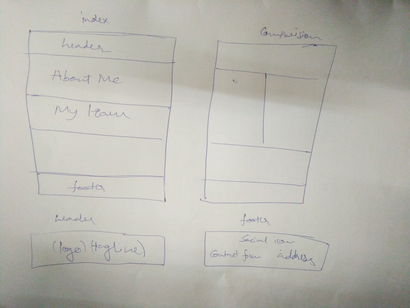 index
header
About Me
My Team
footer
Comparison
header
(logo) (tagline)
footer
Social icon
Contact form address